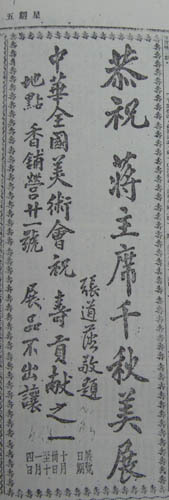 星期五
恭祝 蔣主席千秋美展
張道藩敬題
中華全國美術會祝 壽貢獻之一
地點 香鋪營廿一號 展品不出讓
展覽
日期
十月
至十
一月
四日